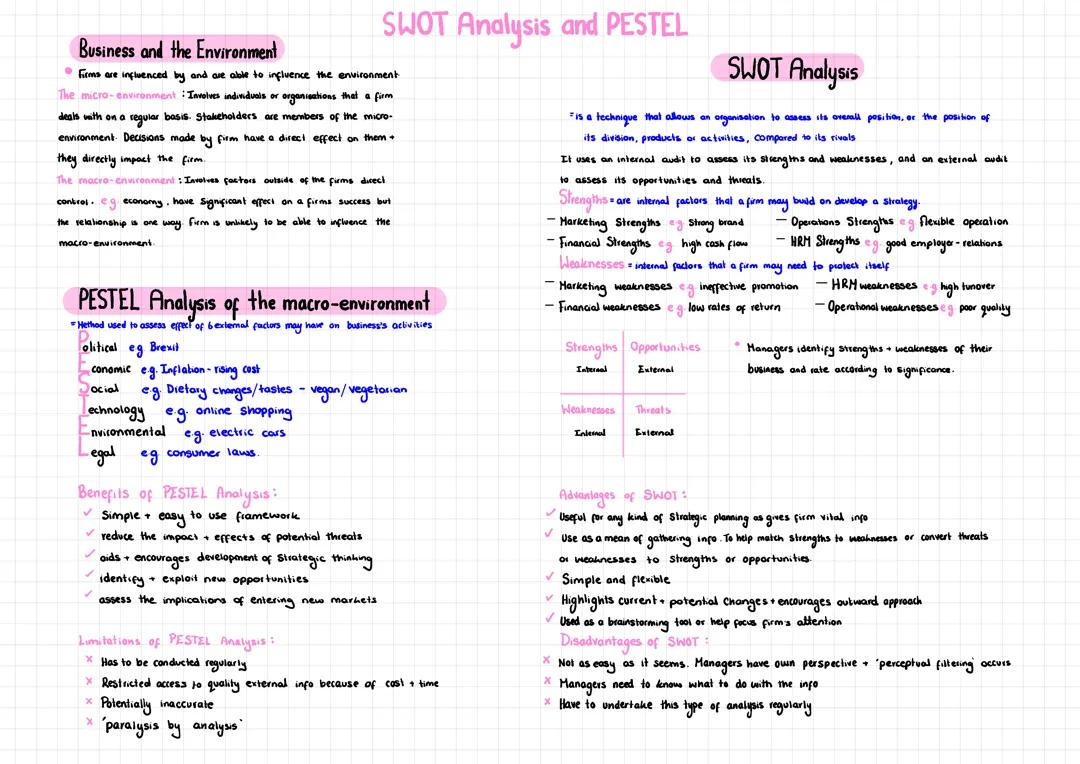 SWOT Analysis and PESTEL
Business and the Environment
• Firms are influenced by and are able to influence the environment
The micro-environment : Involves individuals or organisations that a firm
deals with on a regular basis. Stakeholders are members of the micro-
environment. Decisions made by firm have a direct effect on them +
they directly impact the firm.
The macro-environment : Involves factors outside of the firms direct
control. e.g. economy, have significant effect on a firms success but
the relationship is one way. Firm is unlikely to be able to influence the
macro-environment.
PESTEL Analysis of the macro-environment
= Method used to assess effect of 6 external factors may have on business's activities
Political e.g Brexit
Economic e.g. Inflation - rising cost
Social e.g. Dietary changes/tastes - vegan/vegetarian
Technology e.g. online shopping
Environmental e.g. electric cars
Legal e.g consumer laws.
Benefits of PESTEL Analysis:
✓ Simple + easy to use framework
✓ reduce the impact + effects of potential threats
✓ aids + encourages development of strategic thinking
✓ identify + exploit new opportunities
✓ assess the implications of entering new markets
Limitations of PESTEL Analysis:
x Has to be conducted regularly
x Restricted access to quality external info because of cost + time
x Potentially inaccurate
x 'paralysis by analysis'
SWOT Analysis
= is a technique that allows an organisation to assess its overall position, or the position of
its division, products or activities, compared to its rivals
It uses an internal audit to assess its strengths and weaknesses, and an external audit
to assess its opportunities and threats.
Strengths = are internal factors that a firm may build on develop a strategy.
- Marketing Strengths e.g Strong brand - Operations Strengths e.g flexible operation
- Financial Strengths e.g high cash flow - HRM Strengths e.g. good employer-relations
Weaknesses = internal factors that a firm may need to protect itself
- Marketing weaknesses e.g ineffective promotion - HRM weaknesses e.g high turnover
- Financial weaknesses e.g. low rates of return - Operational weaknesses e.g poor quality
Strengths Opportunities
Internal External
Weaknesses Threats
Internal External
• Managers identify strengths + weaknesses of their
business and rate according to significance.
Advantages of SWOT:
✓ Useful for any kind of strategic planning as gives firm vital info
✓ Use as a mean of gathering info. To help match strengths to weaknesses or convert threats
or weaknesses to strengths or opportunities.
✓ Simple and flexible
✓ Highlights current + potential changes + encourages outward approach
✓ Used as a brainstorming tool or help focus firm's attention
Disadvantages of SWOT:
x Not as easy as it seems. Managers have own perspective + 'perceptual filtering' occurs
x Managers need to know what to do with the info
x Have to undertake this type of analysis regularly